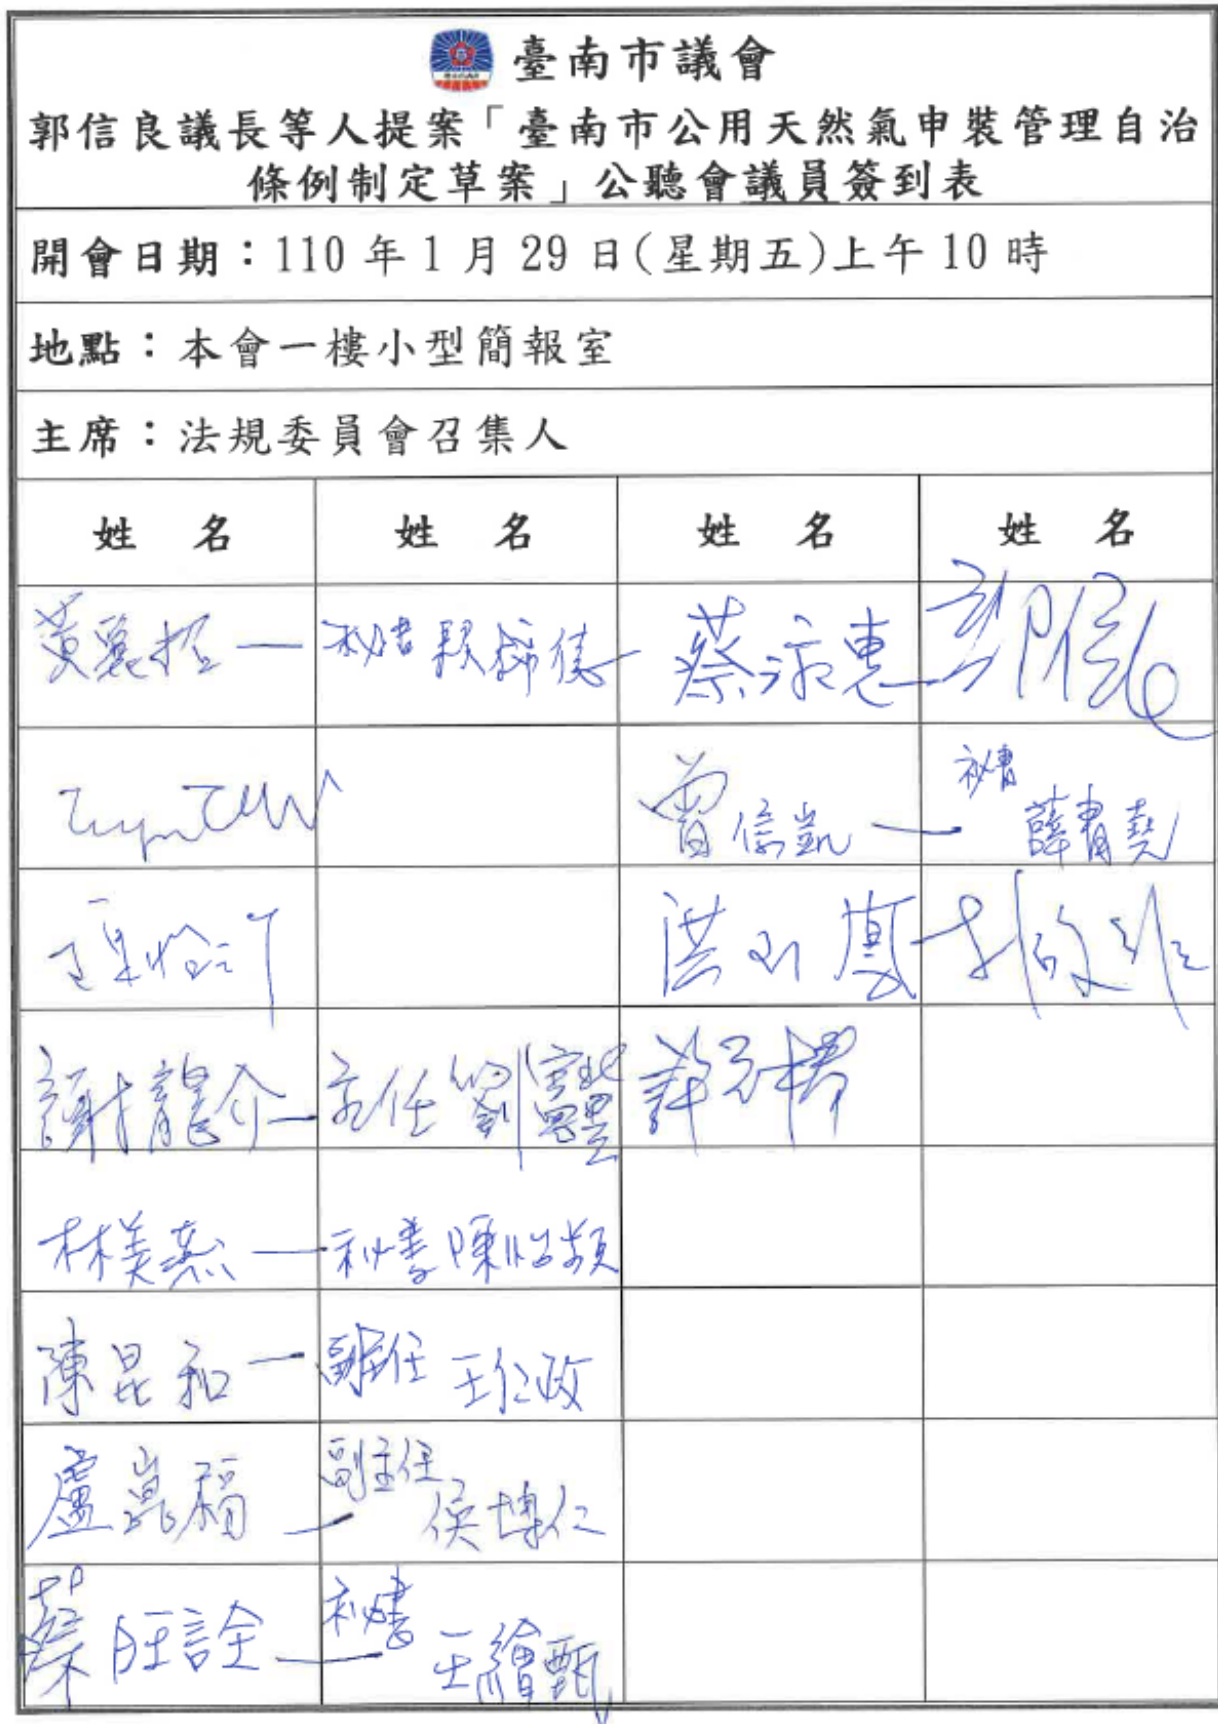 臺南市議會
郭信良議長等人提案「臺南市公用天然氣申裝管理自治
條例制定草案」公聽會議員簽到表
開會日期：110 年 1 月 29 日(星期五)上午 10 時
地點：本會一樓小型簡報室
主席：法規委員會召集人
姓 名 姓 名 姓 名 姓 名
黃麗招 — 秘書 蔡淑惠
曾信凱 — 秘書 薛青堯
洪玉鳳
謝龍介 — 主任 劉
林美燕 — 秘書 陳怡頻
陳昆和 — 副主任 王仁政
盧崑福 — 副主任 侯博仁
蔡旺詮 — 秘書 王繪甄